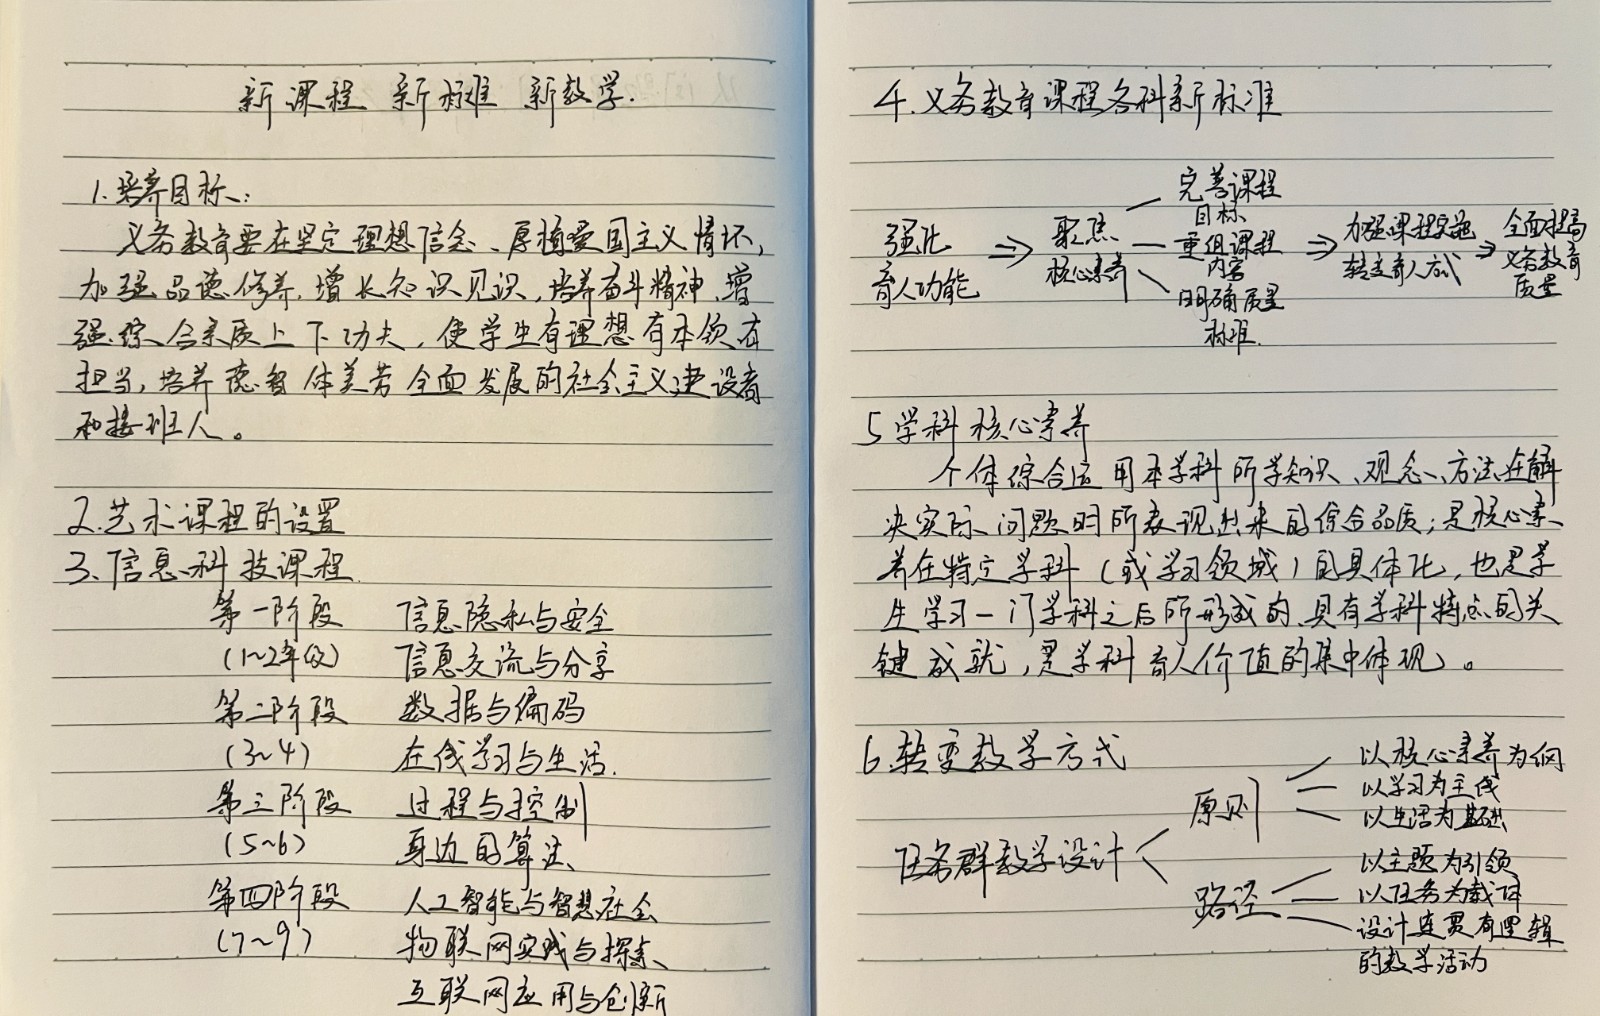 新课程 新标准 新教学.
1.培养目标:
义务教育要在坚定理想信念、厚植爱国主义情怀,
加强品德修养,增长知识见识,培养奋斗精神,增
强综合素质上下功夫,使学生有理想有本领有
担当,培养德智体美劳全面发展的社会主义建设者
和接班人。
2.艺术课程的设置
3、信息科技课程
第一阶段 信息隐私与安全
(1~2年级) 信息交流与分享
第二阶段 数据与编码
(3~4) 在线学习与生活.
第三阶段 过程与控制
(5~6) 身边的算法
第四阶段 人工智能与智慧社会
(7~9) 物联网实践与探索
互联网应用与创新
4.义务教育课程各科新标准
强化
育人功能
⇒
聚焦
核心素养
完善课程
目标
重组课程
内容
明确质量
标准.
⇒
加强课程实施
转变育人方式
⇒
全面提高
义务教育
质量
5学科核心素养
个体综合运用本学科所学知识、观念、方法在解
决实际问题时所表现出来的综合品质;是核心素
养在特定学科(或学习领域)的具体化,也是学
生学习一门学科之后所形成的、具有学科特点的关
键成就,是学科育人价值的集中体现。
6.转变教学方式
任务群教学设计
原则
以核心素养为纲
以学习为主线
以生活为基础
路径
以主题为引领
以任务为载体
设计连贯有逻辑
的教学活动